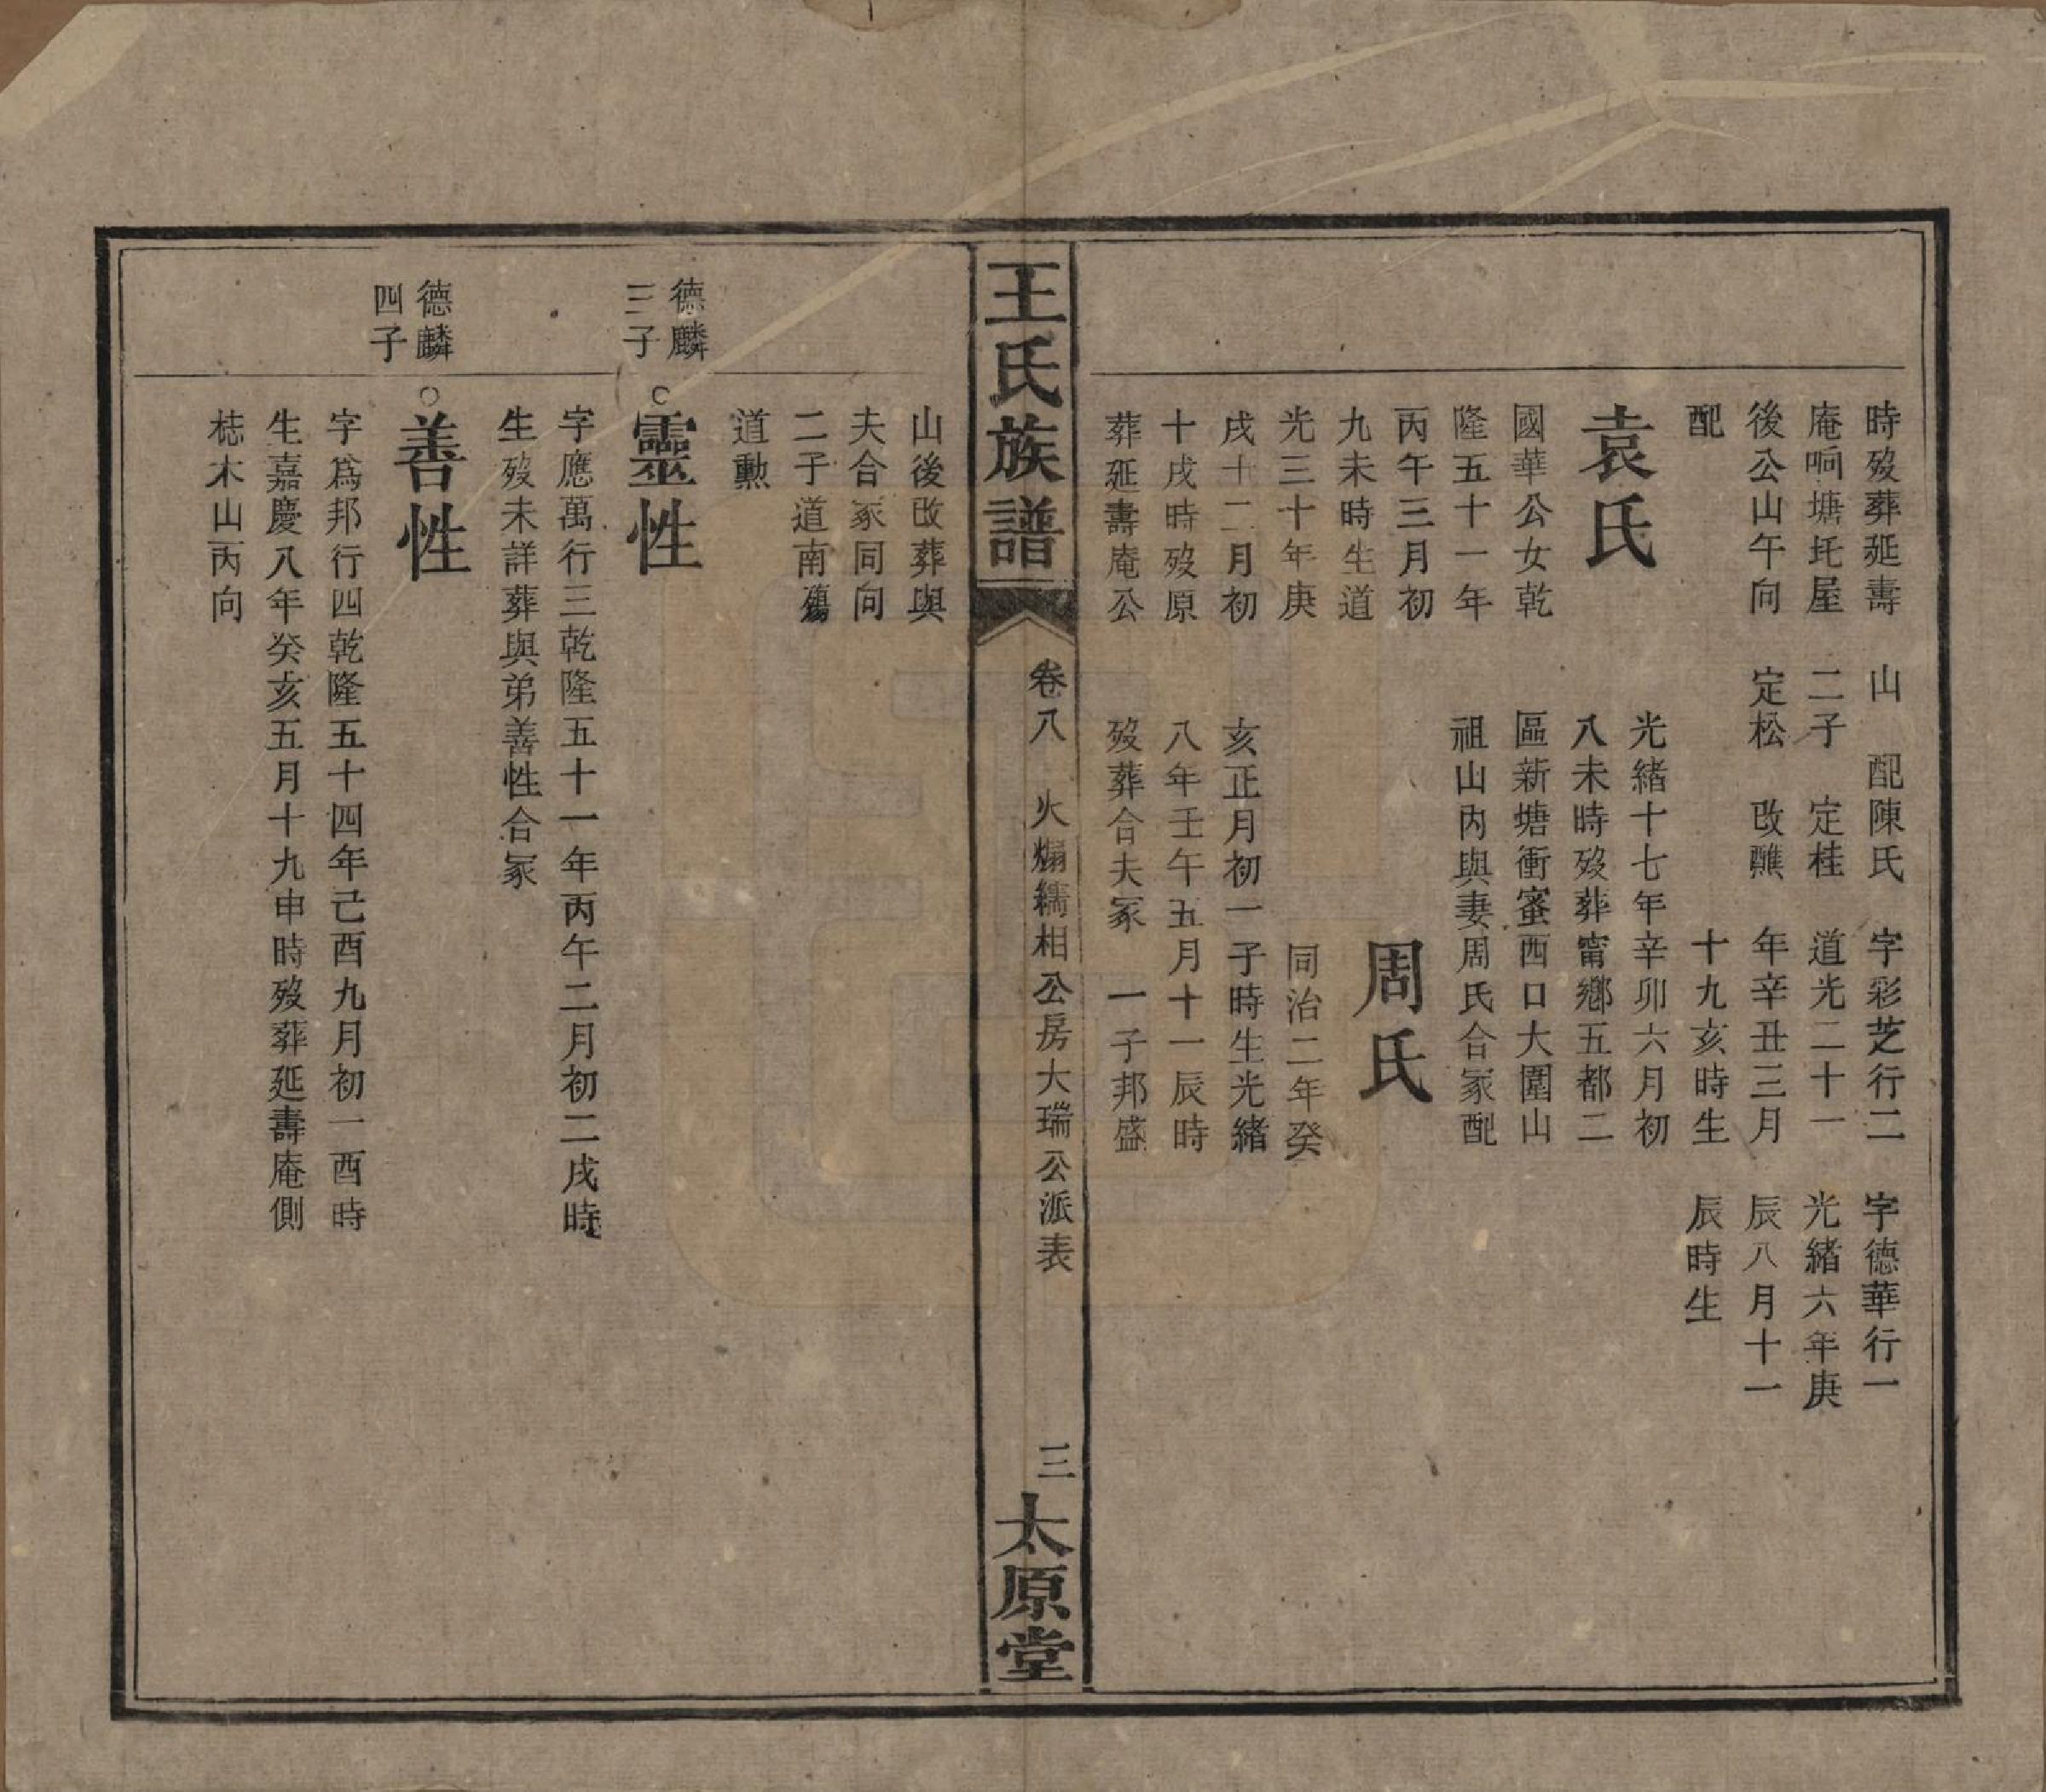 時歿葬延壽
庵响塘圫屋
後公山午向
配
袁氏
國華公女乾
隆五十一年
丙午三月初
九未時生道
光三十年庚
戌十二月初
十戌時歿原
葬延壽庵公
山 配陳氏
二子 定桂
定松 改醮
光緒十七年辛卯六月初
八未時歿葬甯鄉五都二
區新塘衝蜜西口大圍山
祖山內與妻周氏合冢配
周氏
同治二年癸
亥正月初一子時生光緒
八年壬午五月十一辰時
歿葬合夫冢 一子邦盛
字彩芝行二
道光二十一
年辛丑三月
十九亥時生
字德華行一
光緒六年庚
辰八月十一
辰時生
王氏族譜
卷八 火爤繻相公房大瑞公派表
三
太原堂
山後改葬與
夫合冢同向
二子道南殤
道勲
德麟
三子
○靈性
字應萬行三乾隆五十一年丙午二月初二戌時
生歿未詳葬與弟善性合冢
德麟
四子
○善性
字爲邦行四乾隆五十四年己酉九月初一酉時
生嘉慶八年癸亥五月十九申時歿葬延壽庵側
梽木山丙向